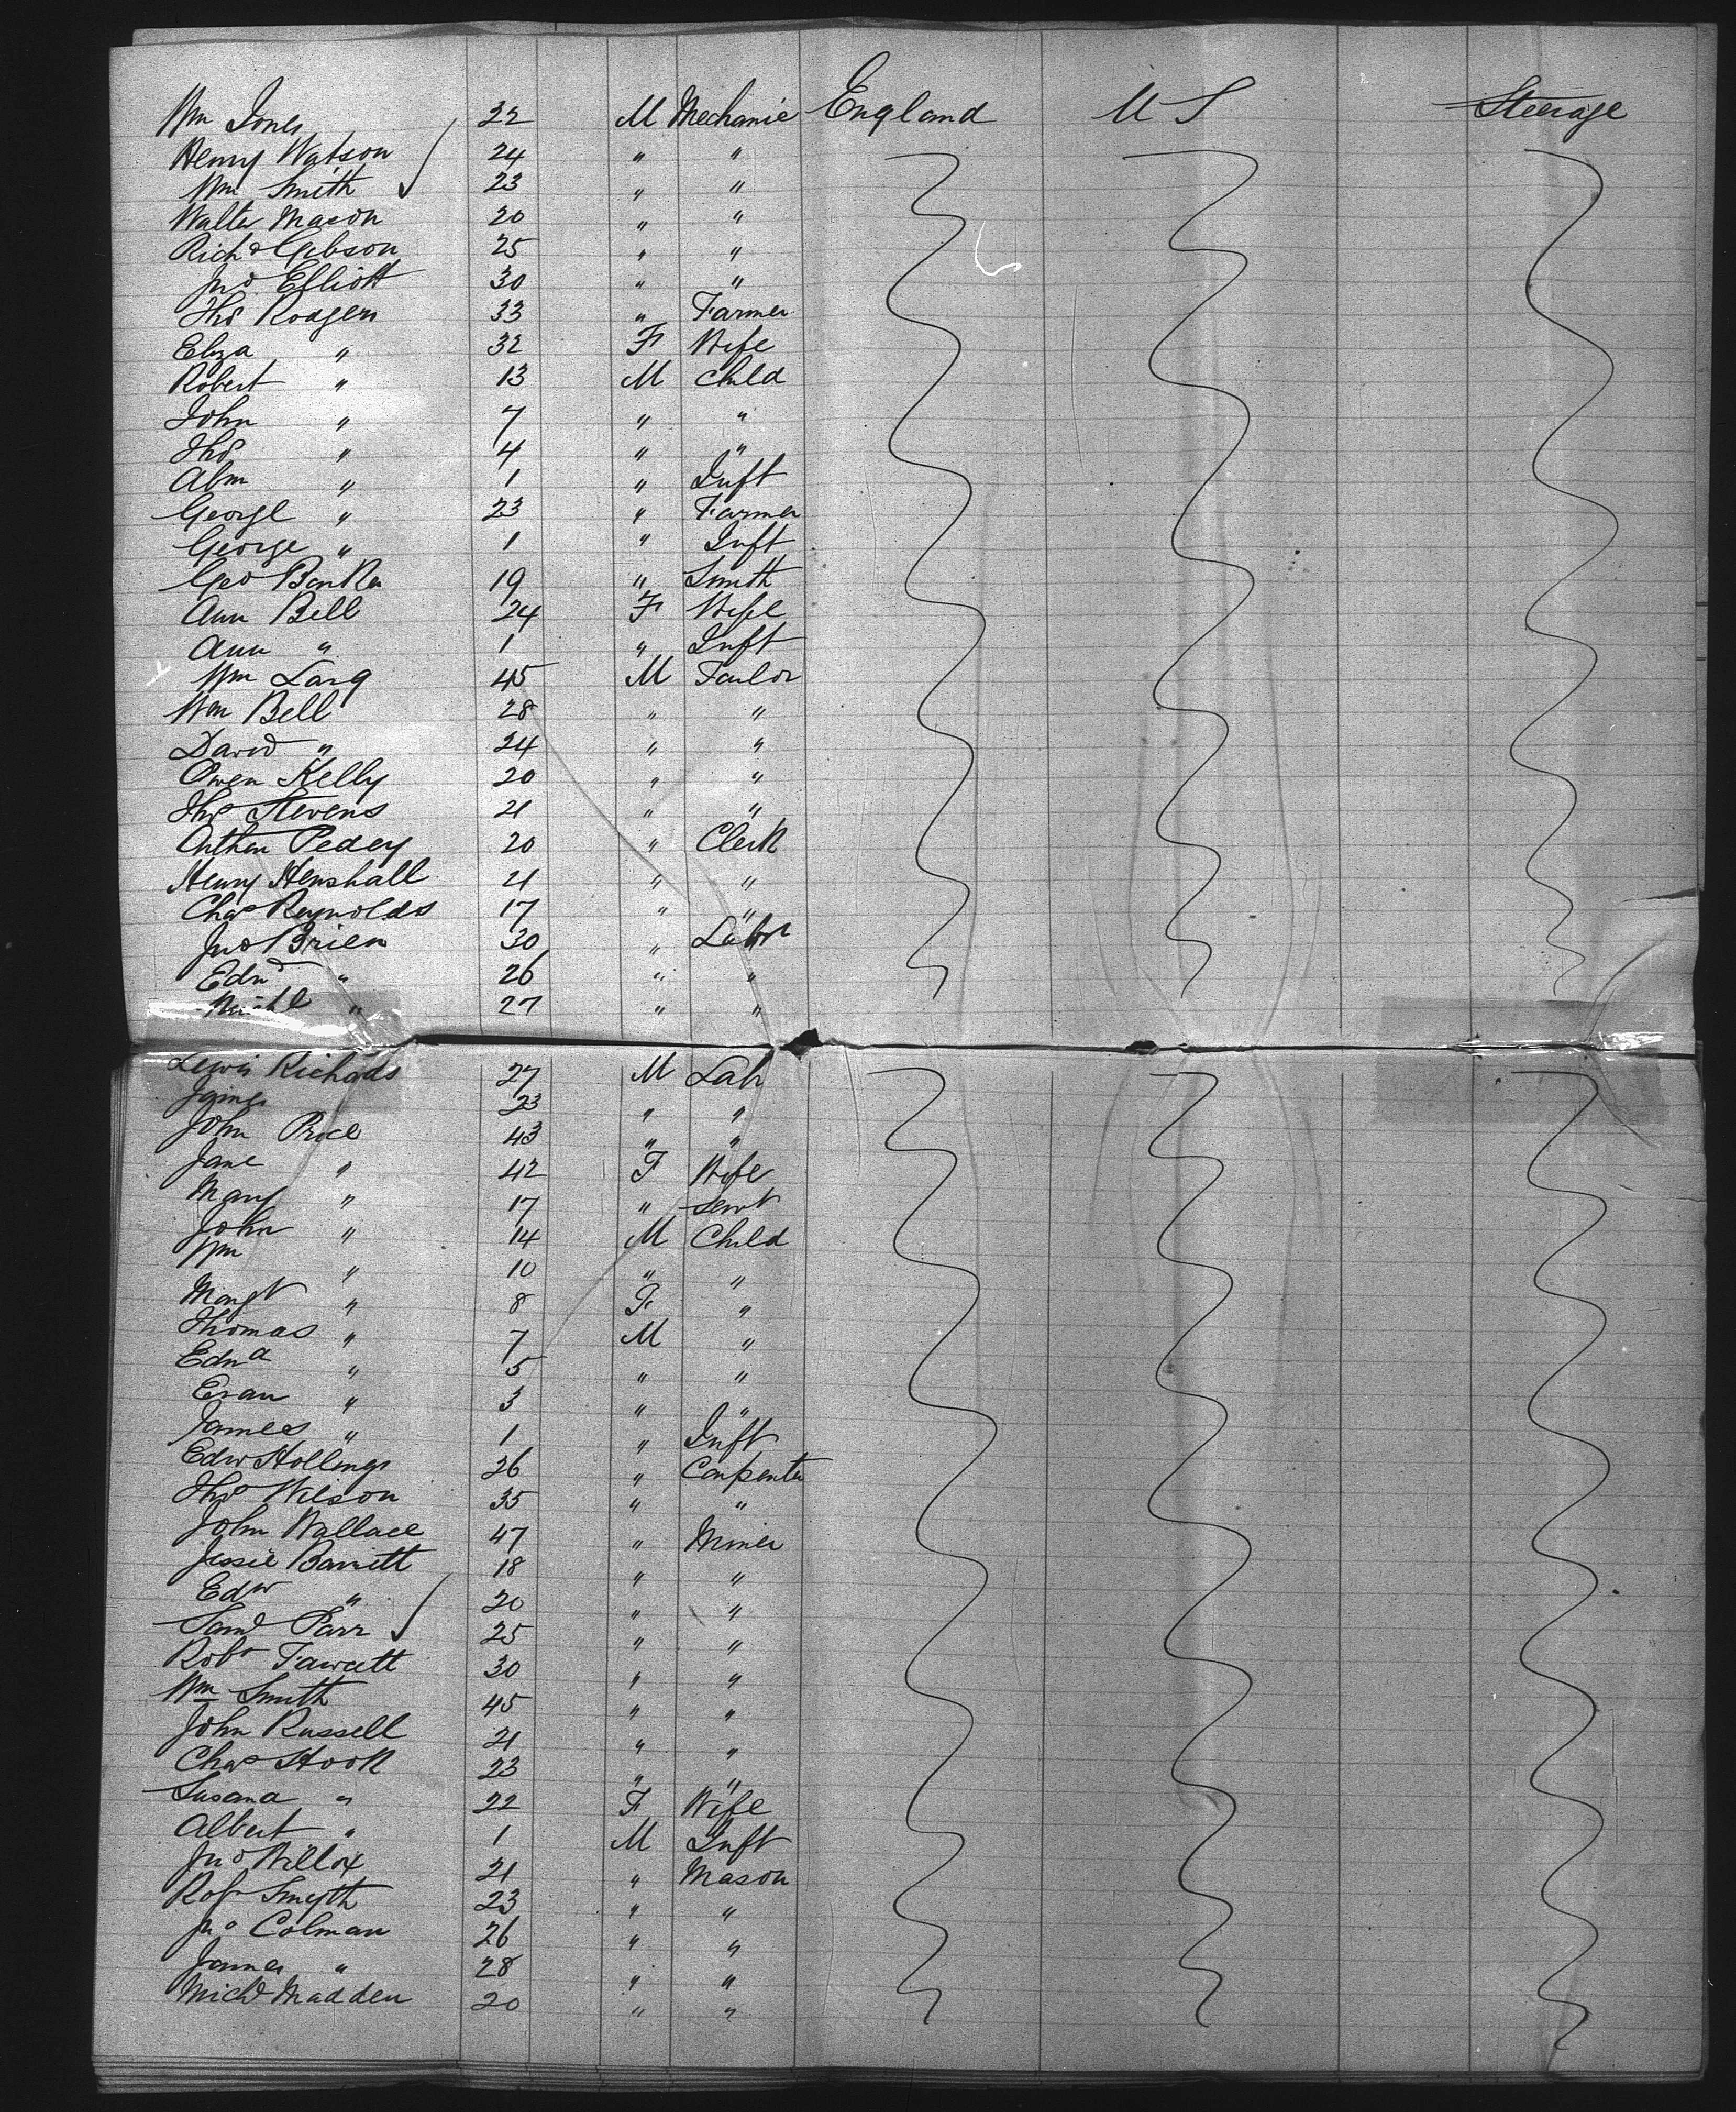 Wm Jones 22 M Mechanic England U S Steerage
Henry Watson 24 " "
Wm Smith 23 " "
Walter Mason 20 " "
Richd Gibson 25 " "
Jno Elliott 30 " "
Thos Rodgers 33 " Farmer
Eliza " 32 F Wife
Robert " 13 M Child
John " 7 " "
Thos " 4 " "
Abm " 1 " Inft
George " 23 " Farmer
George " 1 " Inft
Geo 19 " Smith
Ann Bell 24 F Wife
Ann " 1 " Inft
Wm Lang 45 M Tailor
Wm Bell 28 " "
David " 24 " "
Owen Kelly 20 " "
Thos Stevens 21 " "
Arthur Pedey 20 " Clerk
Henry Henshall 21 " "
Chas Reynolds 17 " "
Jno Brien 30 " Labr
Edm " 26 " "
Michl " 27 " "
Lewis Richards 27 M Labr
James 23 " "
John Price 43 " "
Jane " 42 F Wife
Mary " 17 " Servt
John " 14 M Child
Wm " 10 " "
Margt " 8 F "
Thomas " 7 M "
Edwd " 5 " "
Evan " 3 " "
James " 1 " Inft
Edw Hollings 26 " Carpenter
Thos Wilson 35 " "
John Wallace 47 " Miner
Jessie Barnett 18 " "
Edw " 20 " "
Saml Parr 25 " "
Robt Fawcett 30 " "
Wm Smith 45 " "
John Russell 21 " "
Chas Hook 23 " "
Susana " 22 F Wife
Albert " 1 M Inft
Jno Willox 21 " Mason
Robt Smyth 23 " "
Jno Colman 26 " "
James " 28 " "
Michl Madden 20 " "